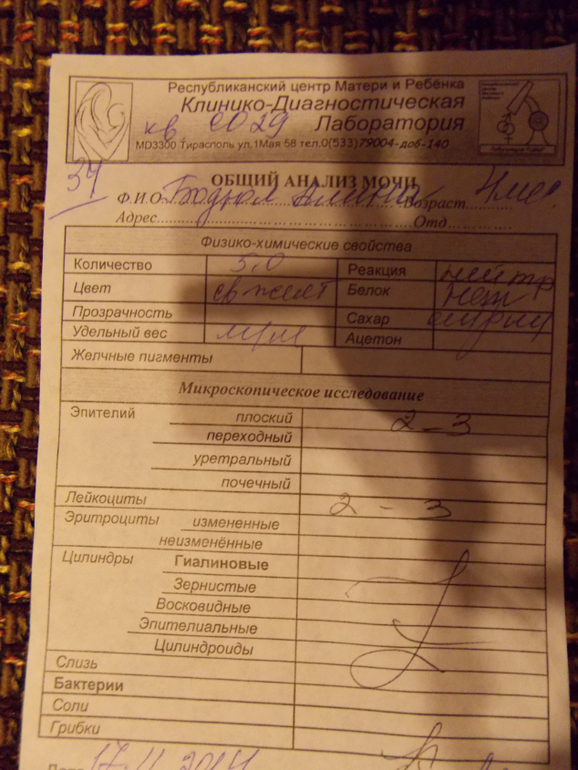 Республиканский центр Матери и Ребёнка
Клинико-Диагностическая
Лаборатория
MD3300 Тирасполь ул.1Мая 58 тел.0(533)79004-доб-140
34
ОБЩИЙ АНАЛИЗ МОЧИ
Ф.И.О. Возраст 4 мес.
Адрес Отд
Физико-химические свойства
Количество 5,0 Реакция нейтр
Цвет св желт Белок нет
Прозрачность
Сахар
Удельный вес м/м Ацетон
Желчные пигменты
Микроскопическое исследование
Эпителий плоский 2-3
переходный
уретральный
почечный
Лейкоциты 2-3
Эритроциты измененные
неизменённые
Цилиндры Гиалиновые
Зернистые
Восковидные
Эпителиальные
Цилиндроиды
Слизь
Бактерии
Соли
Грибки
17.11.2014